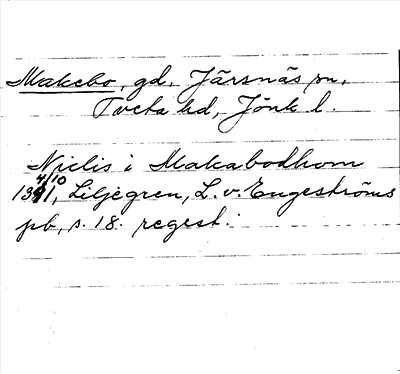 Makebo, gd, Järsnäs sn,
Tveta hd, Jönk l.
Niclis i Makabodhom
4/10
1391, Liljegren, L. v. Engeströms
pb, s. 18. regest.